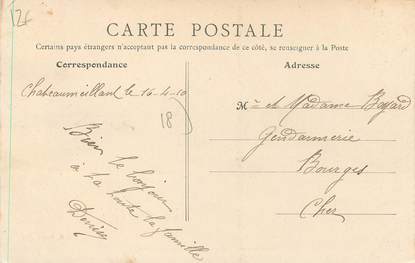 12€
CARTE POSTALE
Certains pays étrangers n'acceptant pas la correspondance de ce côté, se renseigner à la Poste
Correspondance
Adresse
Chateaumeillant le 16-4-10
18
Bien le bonjour
à la toute la famille
Denise
Mr et Madame Bayard
Gendarmerie
Bourges
Cher